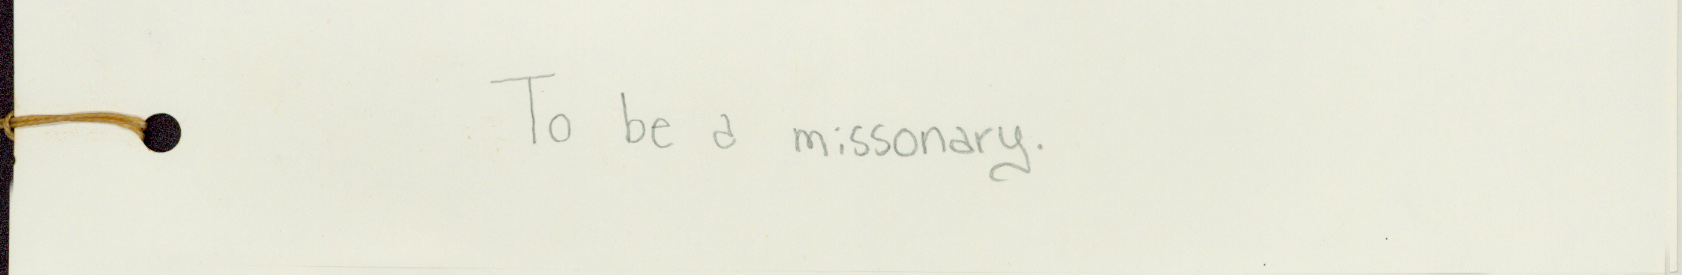 To be a missonary.